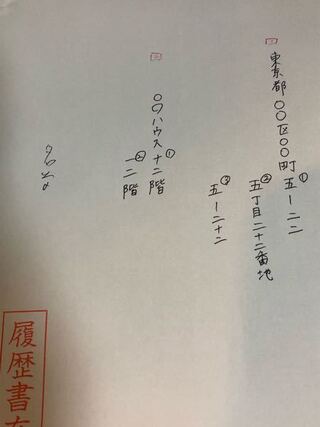 東京都〇〇区〇〇町①五ー二二
②五丁目二十二番地
③五ー二十二
〇〇ハウス①十二階
②一二階
履歴書